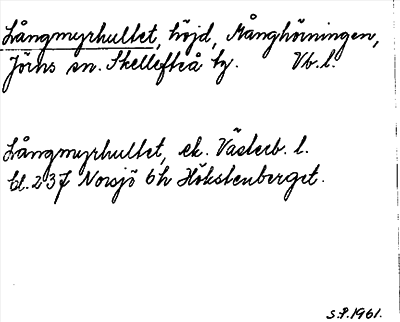 Långmyrhultet, höjd, Månghörningen,
Jörns sn. Skellefteå tg. Vb.l.
Långmyrhultet, ek. Västerb. l.
bl. 237 Norsjö 6h Hökstenberget.
S.P. 1961.